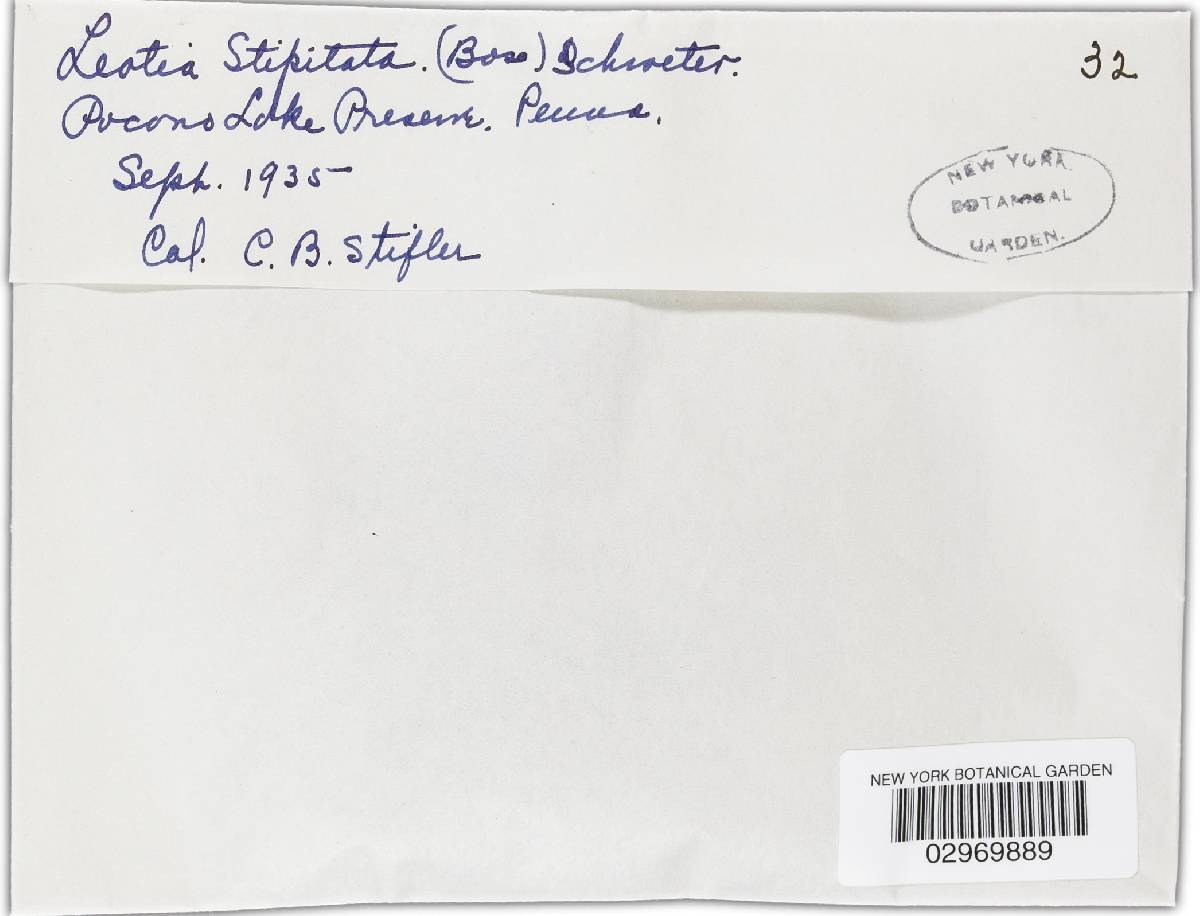 Leotia Stipitata. (Bosc) Schroeter.
32
Pocono Lake Preserve. Penna.
Sept. 1935
Col. C. B. Stifler
NEW YORK
BOTANICAL
GARDEN.
NEW YORK BOTANICAL GARDEN
02969889